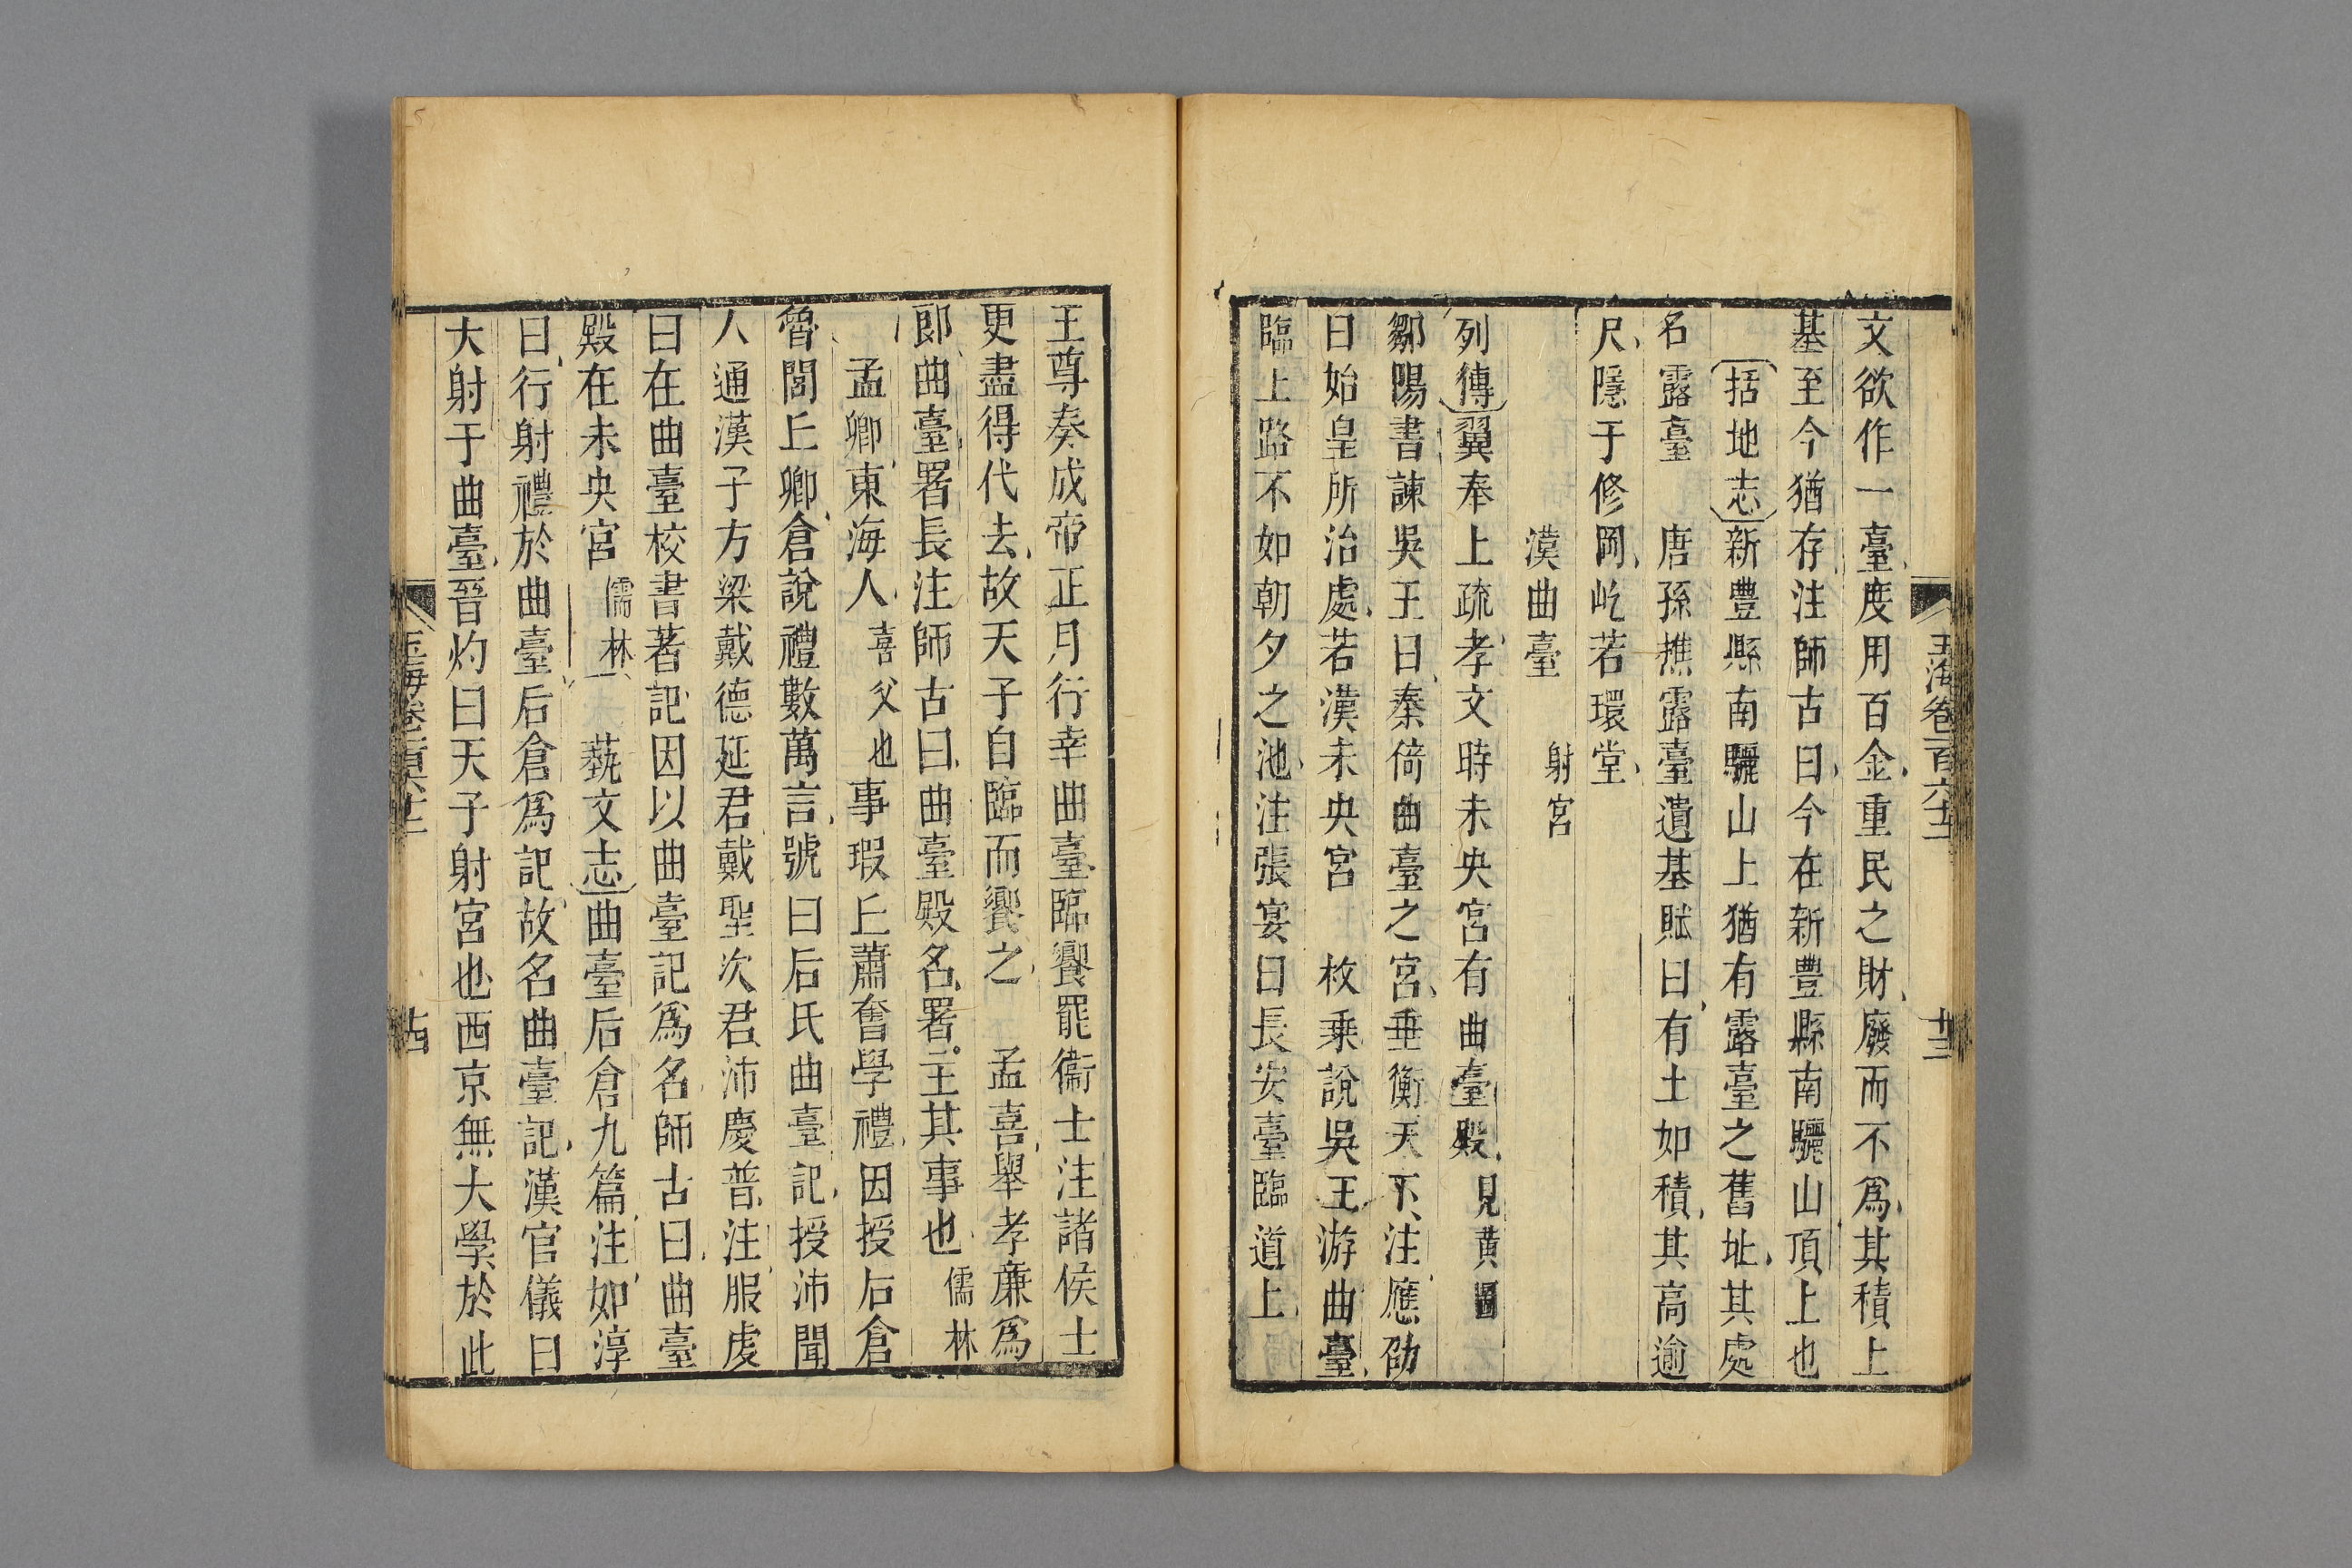 玉海卷一百六十二
十三
文欲作一臺度用百金重民之財廢而不爲其積上
基至今猶存注師古曰今在新豐縣南驪山頂上也
括地志新豐縣南驪山上猶有露臺之舊址其處
名露臺 唐孫樵露臺遺基賦曰有土如積其高逾
尺隱于修岡屹若環堂
漢曲臺 射宮
列傳翼奉上疏孝文時未央宮有曲臺殿見黃圖
鄒陽書諫吳王曰秦倚曲臺之宮垂衡天下注應劭
曰始皇所治處若漢未央宮 枚乗說吳王游曲臺
臨上路不如朝夕之池注張宴曰長安臺臨道上
王尊奏成帝正月行幸曲臺臨饗罷衞士注諸侯士
更盡得代去故天子自臨而饗之 孟喜舉孝廉爲
郎曲臺署長注師古曰曲臺殿名署主其事也儒林
孟卿東海人喜父也事瑕丘蕭奮學禮因授后倉
魯閭丘卿倉說禮數萬言號曰后氏曲臺記授沛聞
人通漢子方梁戴德延君戴聖次君沛慶普注服虔
曰在曲臺校書著記因以曲臺記爲名師古曰曲臺
殿在未央宮儒林 藝文志曲臺后倉九篇注如淳
曰行射禮於曲臺后倉爲記故名曲臺記漢官儀曰
大射于曲臺晉灼曰天子射宮也西京無大學於此
玉海卷一百六十二
十四